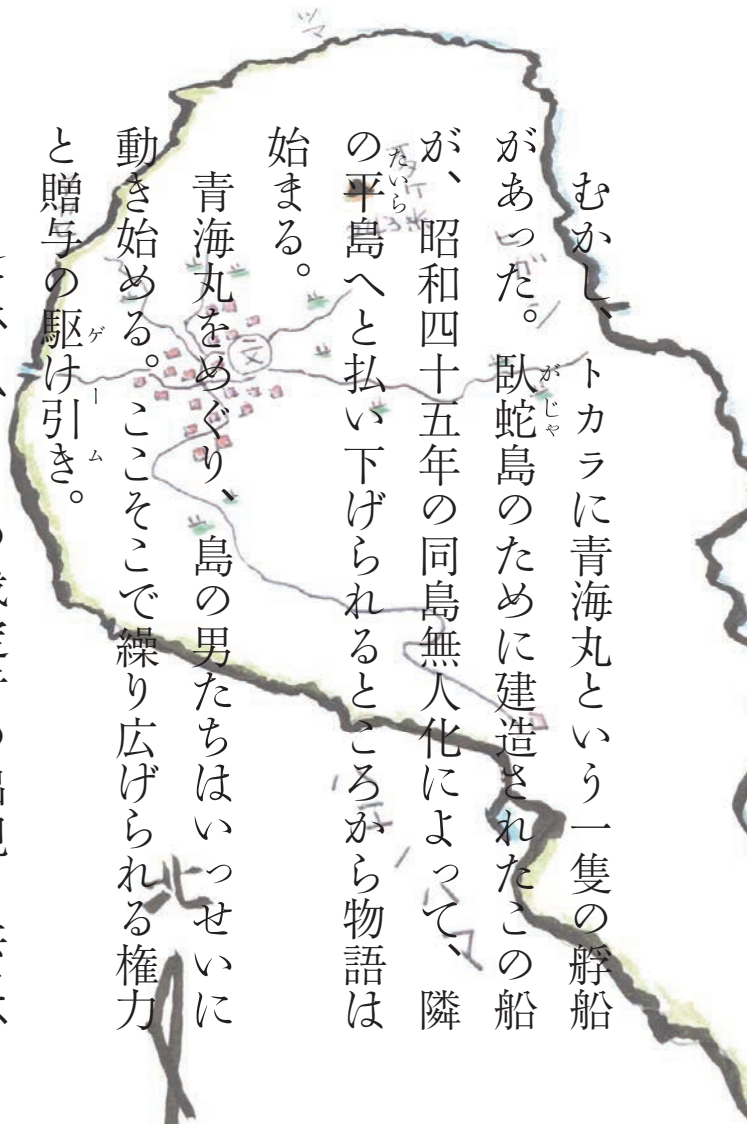 むかし、トカラに青海丸という一隻の艀船
があった。臥蛇島のために建造されたこの船
が、昭和四十五年の同島無人化によって、隣
の平島へと払い下げられるところから物語は
始まる。
青海丸をめぐり、島の男たちはいっせいに
動き始める。ここそこで繰り広げられる権力
と贈与の駆け引き。
がじゃ
たいら
ゲーム
ツマ
文
北